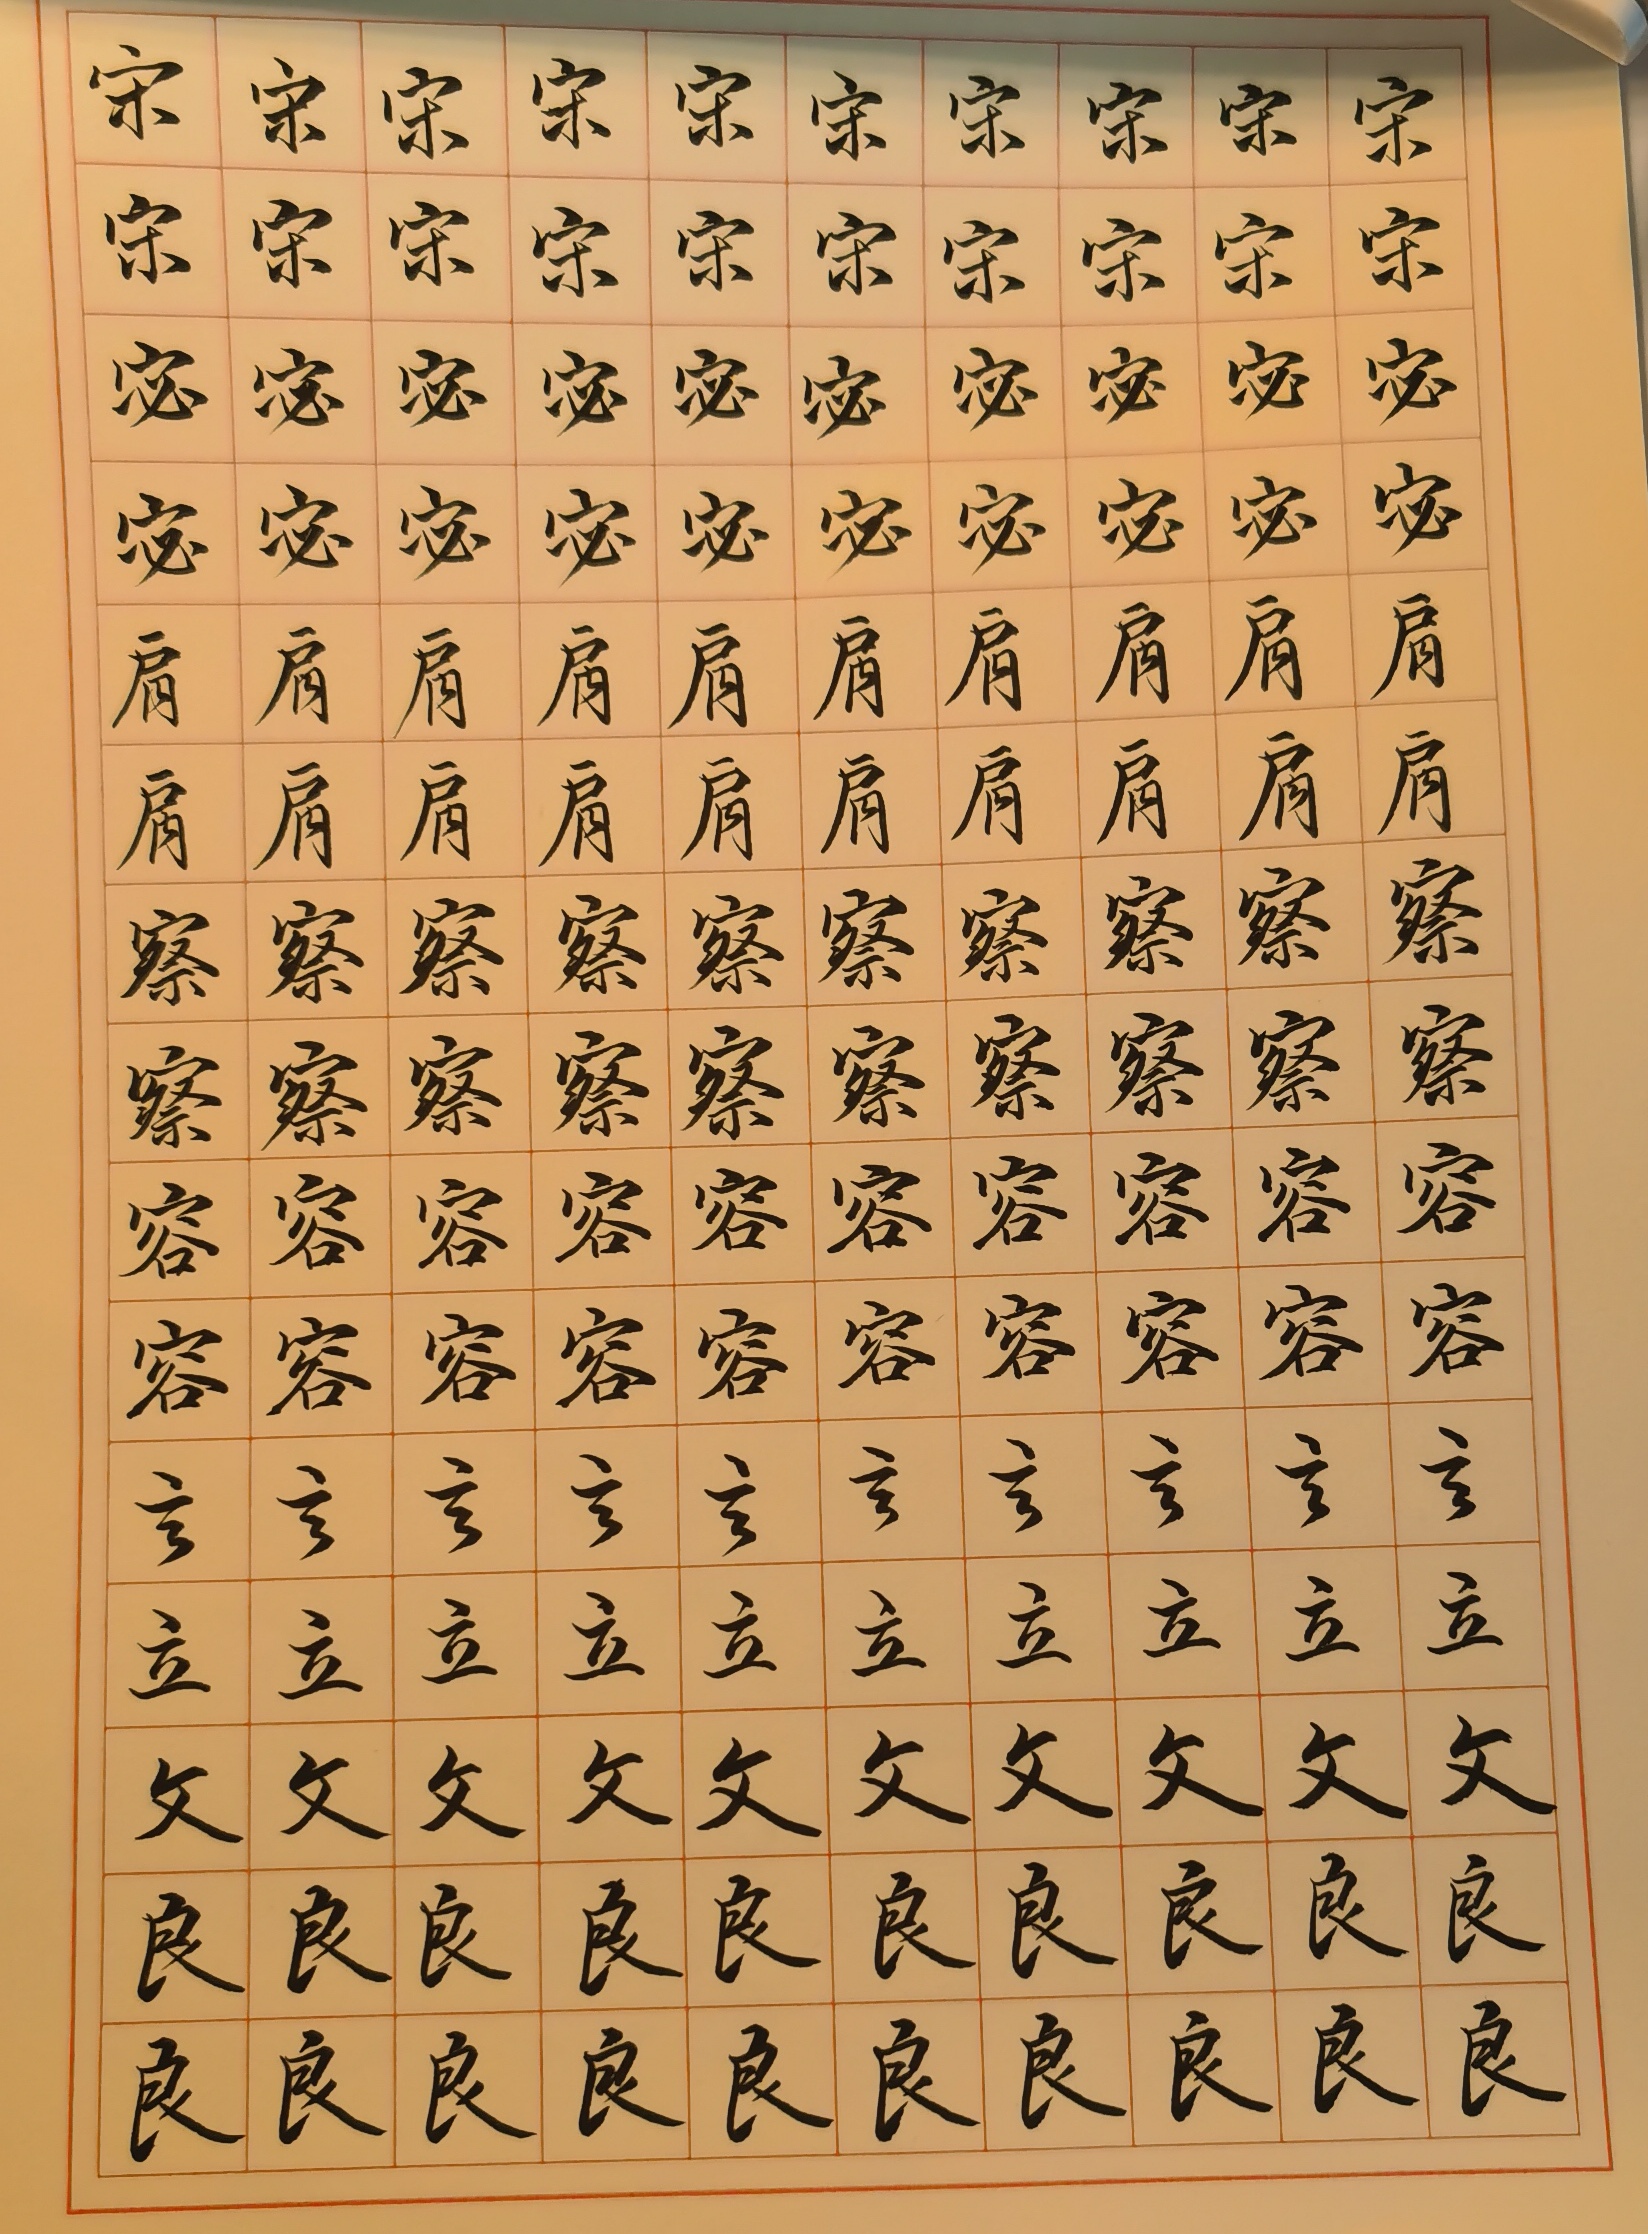 宋宋宋宋宋宋宋宋宋宋
宋宋宋宋宋宋宋宋宋宋
宓宓宓宓宓宓宓宓宓宓
宓宓宓宓宓宓宓宓宓宓
肩肩肩肩肩肩肩肩肩肩
肩肩肩肩肩肩肩肩肩肩
察察察察察察察察察察
察察察察察察察察察察
容容容容容容容容容容
容容容容容容容容容容
言言言言言言言言言言
立立立立立立立立立立
文文文文文文文文文文
良良良良良良良良良良
良良良良良良良良良良